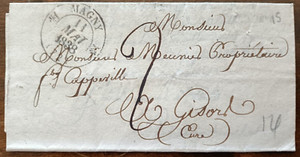 MAGNY
11
MAI
Monsieur
Monsieur Meunier Propriétaire
Cappeville
2
A Gisors
Eure
15